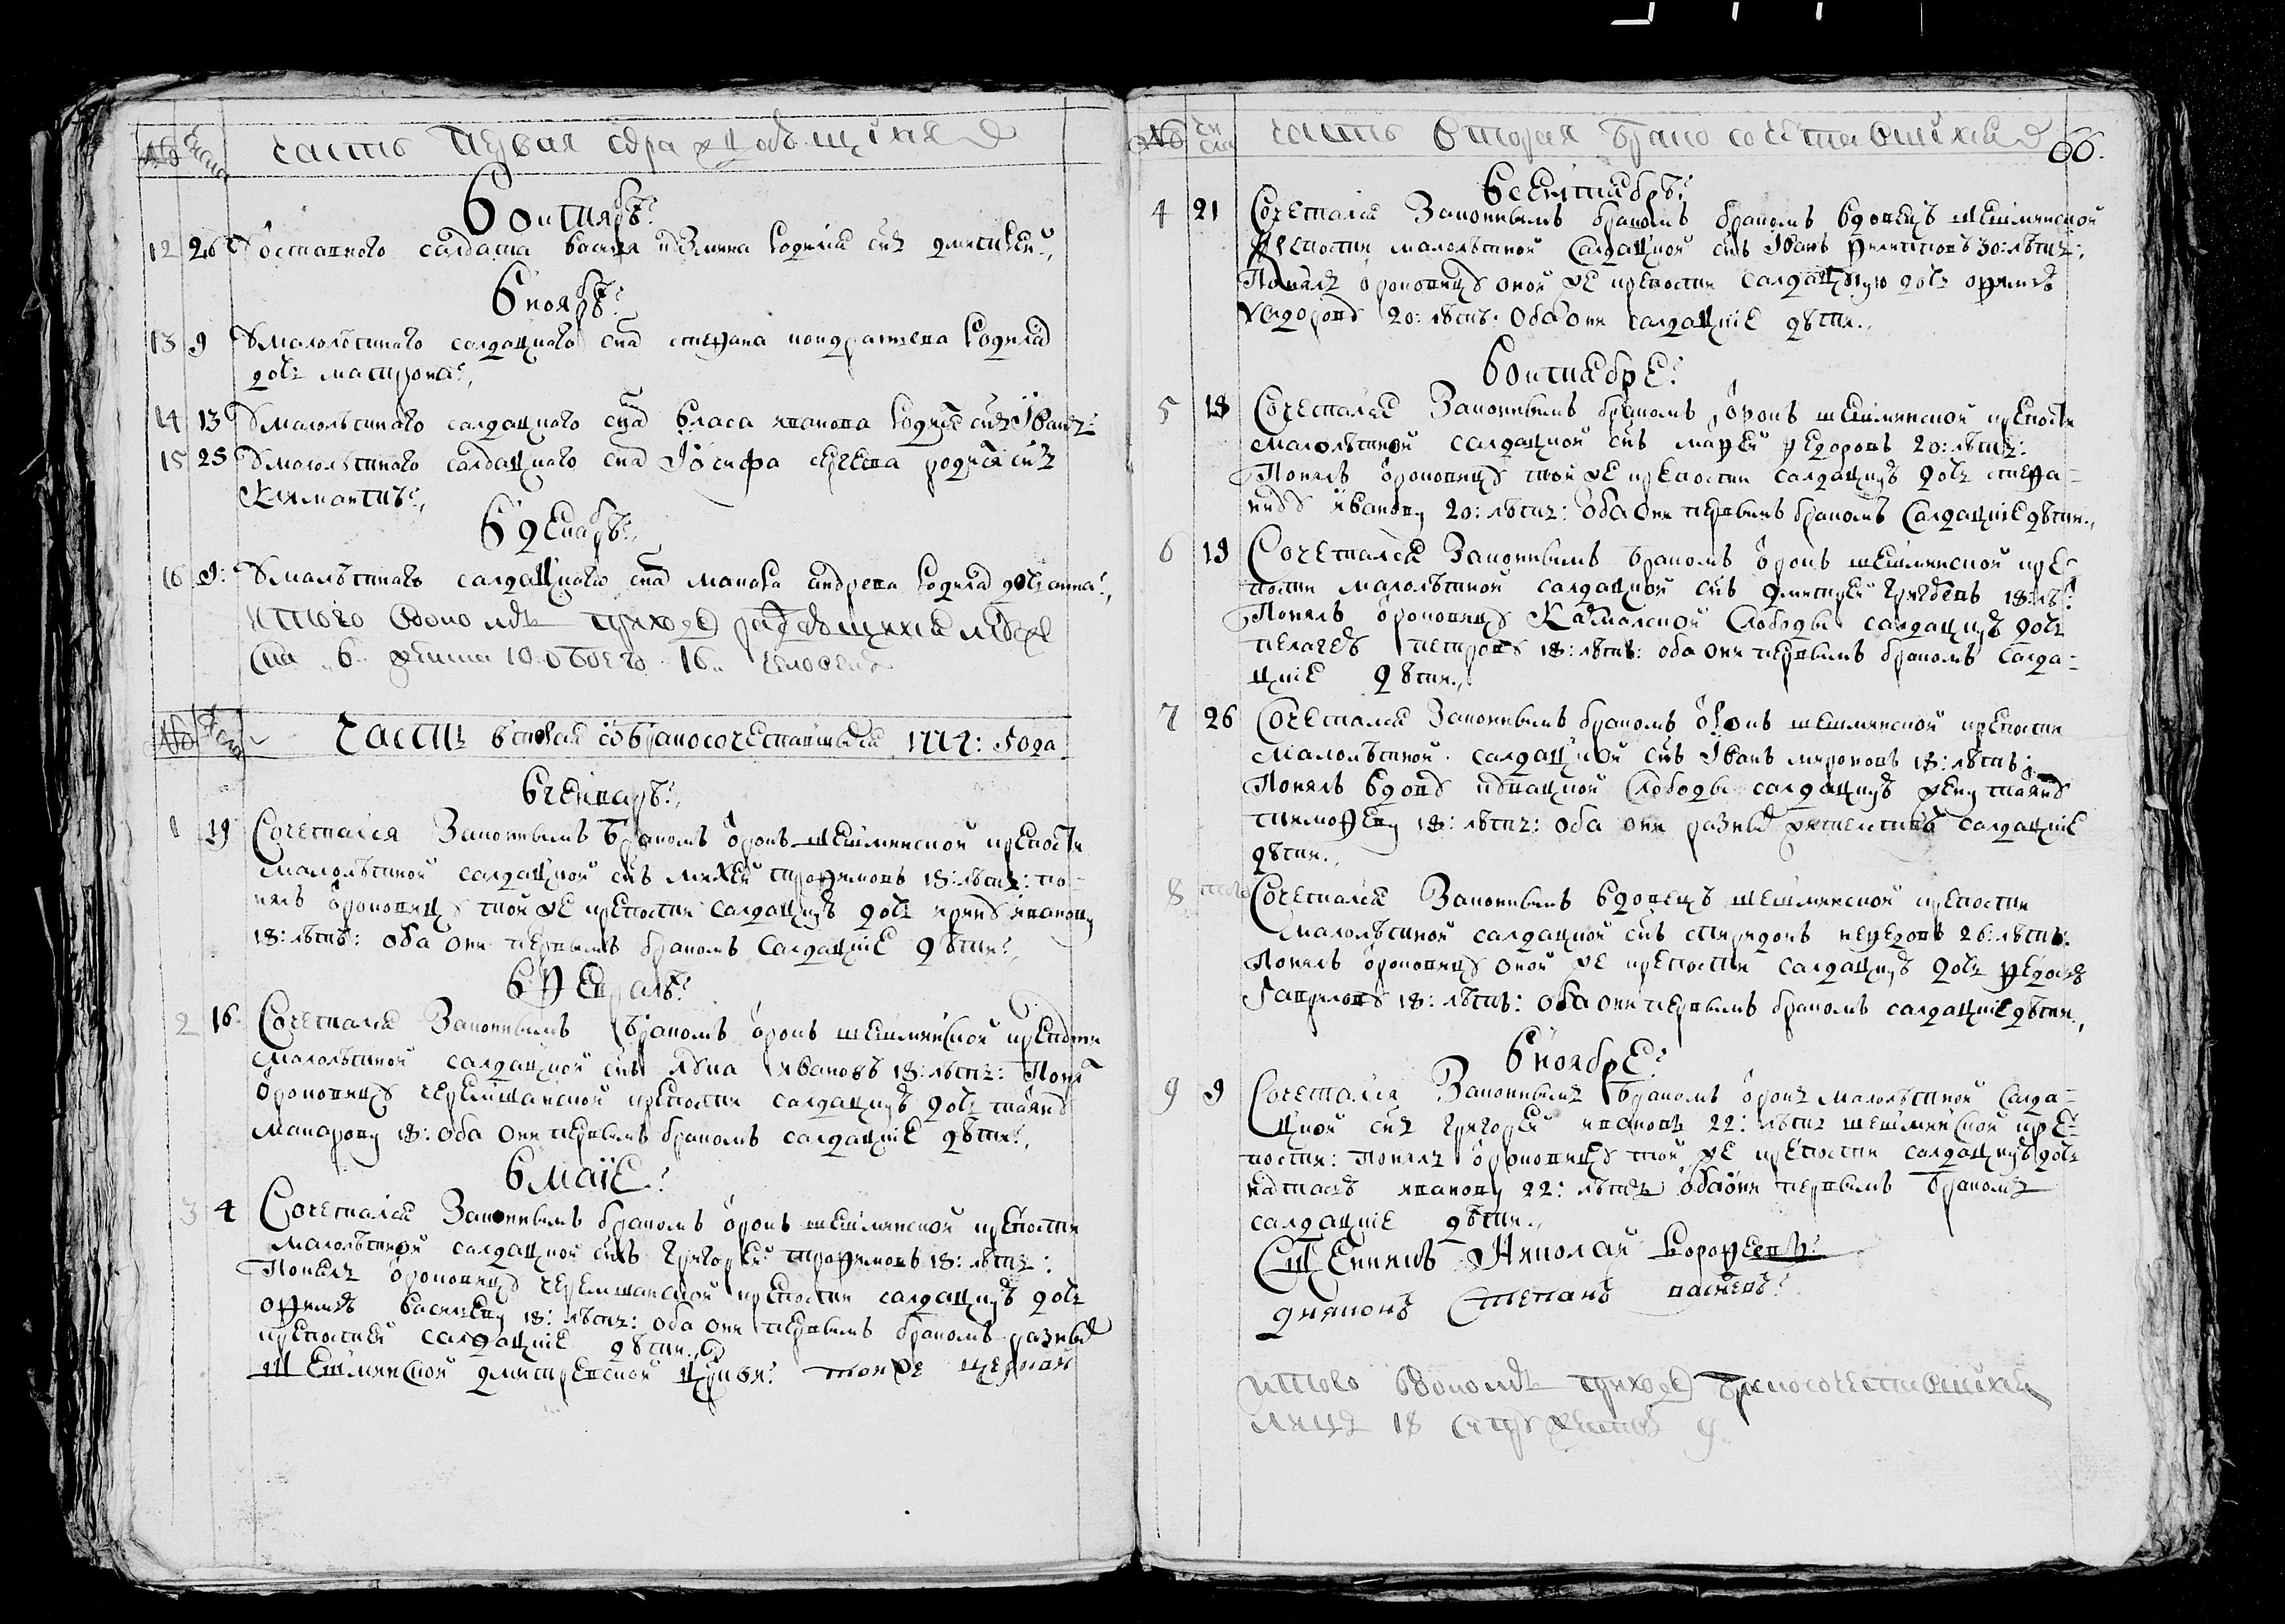 № числа часть первая о раждающихся
В октябрѣ
12 26 У оставного салдата василя измина родился снъ дмитрѣй
В ноябрѣ
13 9 У малолѣтнаго салдацкаго сна степана кондратьева родилас
дочь матрона
14 13 У малолѣтнаго салдацкого сна власа иванова родился снъ Іванъ
15 25 У малолѣтнаго салдацкаго сна Іосифа сергеева родился снъ
Климантъ
В декабрѣ
16 9 У малолѣтнаго салдацкаго сна макара андреева родилас дочь анна
итого во ономъ приходе раждающихся мужеска
6 женска 10 обоего 16 человекъ
№ числа Часть вторая о бракосочетавшихся 1774: года
В генварѣ
1 19 Сочетался Законнымъ бракомъ отрокъ шешминской крепости
малолѣтной салдацкой снъ михей трофимовъ 18: лѣтъ: по-
нялъ отроковицу той же крепости салдацкую дочь ирину иванову
18: лѣтъ: оба они первымъ бракомъ Салдацкіе дѣти
В Февралѣ
2 16 Сочетался Законнымъ бракомъ отрокъ шешминской крепости
малолѣтной салдацкой снъ лука ивановъ 18: лѣтъ: Понялъ
отроковицу черемшанской крепости салдацкую дочь татьяну
макарову 18: оба они первымъ бракомъ салдацкіе дѣти
В маіе
3 4 Сочетался Законнымъ бракомъ отрокъ шешминской крепости
малолѣтной салдацкой снъ григорей трофимовъ 18: лѣтъ:
Понялъ отроковицу черемшанской крепости салдацкую дочь
офимью васильеву 18: лѣтъ: оба они первымъ бракомъ разныхъ
крепостей салдацкіе дѣти
Шешминской дмитреевской церкви той же церкви
№ числа часть вторая бракосочетавшихся 66.
В сентябрѣ
4 21 Сочетался Законнымъ бракомъ бракомъ вдовецъ шешминской
крепости малолѣтной салдацкой снъ Іванъ филиповъ 30: лѣтъ:
Понялъ отроковицу оной же крепости салдацкую дочь офимью
Федорову 20: лѣтъ: Оба они салдацкіе дѣти
В октябре
5 18 Сочетался Законнымъ бракомъ отрокъ шешминской крепости
малолѣтной салдацкой снъ матфей федоровъ 20: лѣтъ:
Понялъ отроковицу той же крепости салдацкую дочь стефа-
ниду иванову 20: лѣтъ: оба они первымъ бракомъ Салдацкіе дѣти
6 19 Сочетался Законнымъ бракомъ отрокъ шешминской кре-
пости малолѣтной салдацкой снъ дмитрей 18: лѣ
Понялъ отроковицу Слободы салдацкую дочь
пелагею петрову 18: лѣтъ: оба они первымъ бракомъ Салда-
цкіе дѣти
7 26 Сочетался Законнымъ бракомъ отрокъ шешминской крепости
малолѣтной салдацкой снъ Іванъ мироновъ 18: лѣтъ:
Понялъ вдову Слободы салдацкую жену татьяну
тимофееву 18: лѣтъ: оба они разныхъ жителствъ салдацкіе
дѣти
8 того Сочетался Законнымъ вдовецъ шешминской крепости
малолѣтной салдацкой снъ спиридонъ 26: лѣтъ:
Понялъ отроковицу оной же крепости салдацкую дочь федосью
Гаврилову 18: лѣтъ: оба они первымъ бракомъ салдацкіе дѣти
В ноябре
9 9 Сочетался Законнымъ бракомъ отрокъ малолѣтной Салда-
цкой снъ григорей ивановъ 22: лѣтъ шешминской кре-
пости: понялъ отроковицу той же крепости салдацкую дочь
настасью иванову 22: лѣтъ оба они первымъ бракомъ
салдацкіе дѣти
Сщенникъ Николай
диаконъ Степанъ
итого во ономъ приходе бракосочетавшихся
лицъ 18 супружествъ 9